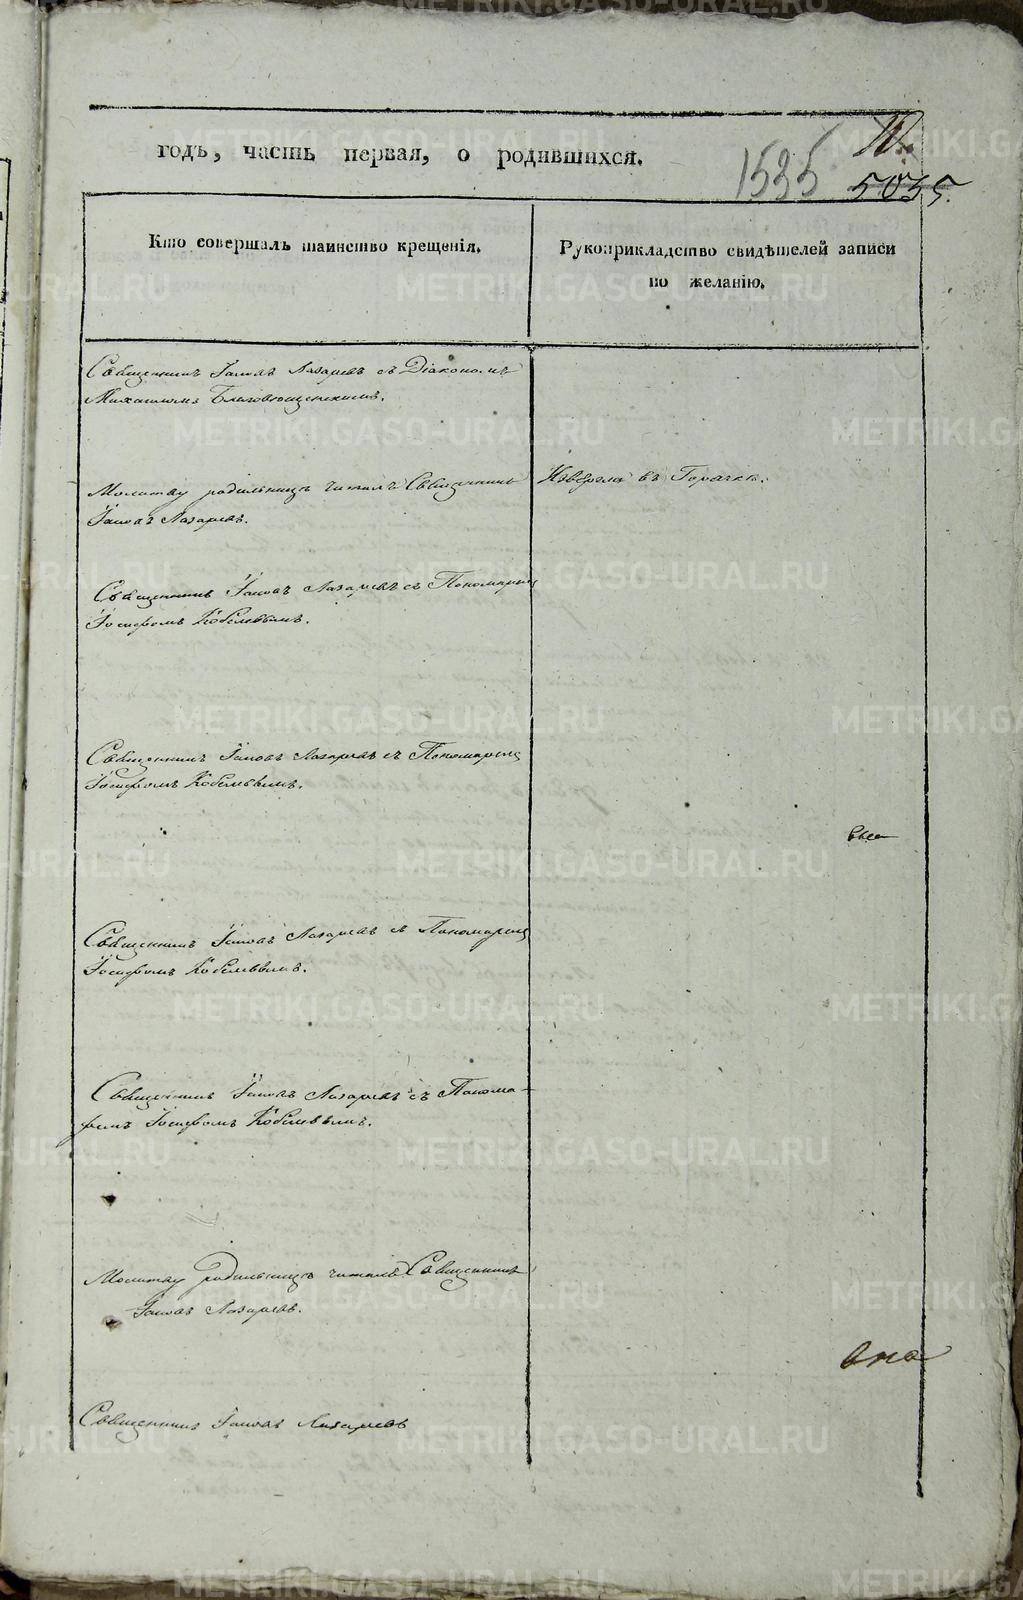 годъ, часть первая, о родившихся.
1535
5035.
Кто совершалъ таинство крещенія.
Рукоприкладство свидѣтелей записи
по желанію.
Священникъ Іаковъ Лазаревъ съ Діакономъ
Михаиломъ Благовѣщенскимъ.
Молитву родильницѣ читалъ Священникъ
Іаковъ Лазаревъ.
въ
Священникъ Іаковъ Лазаревъ съ Пономаремъ
Іосифомъ Кобелевымъ.
Священникъ Іаковъ Лазаревъ съ Пономаремъ
Іосифомъ Кобелевымъ.
Священникъ Іаковъ Лазаревъ съ Пономаремъ
Іосифомъ Кобелевымъ.
Священникъ Іаковъ Лазаревъ съ Понома-
ремъ Іосифомъ Кобелевымъ.
Молитву родильницѣ читалъ Священникъ
Іаковъ Лазаревъ.
Священникъ Іаковъ Лазаревъ
METRIKI.GASO-URAL.RU